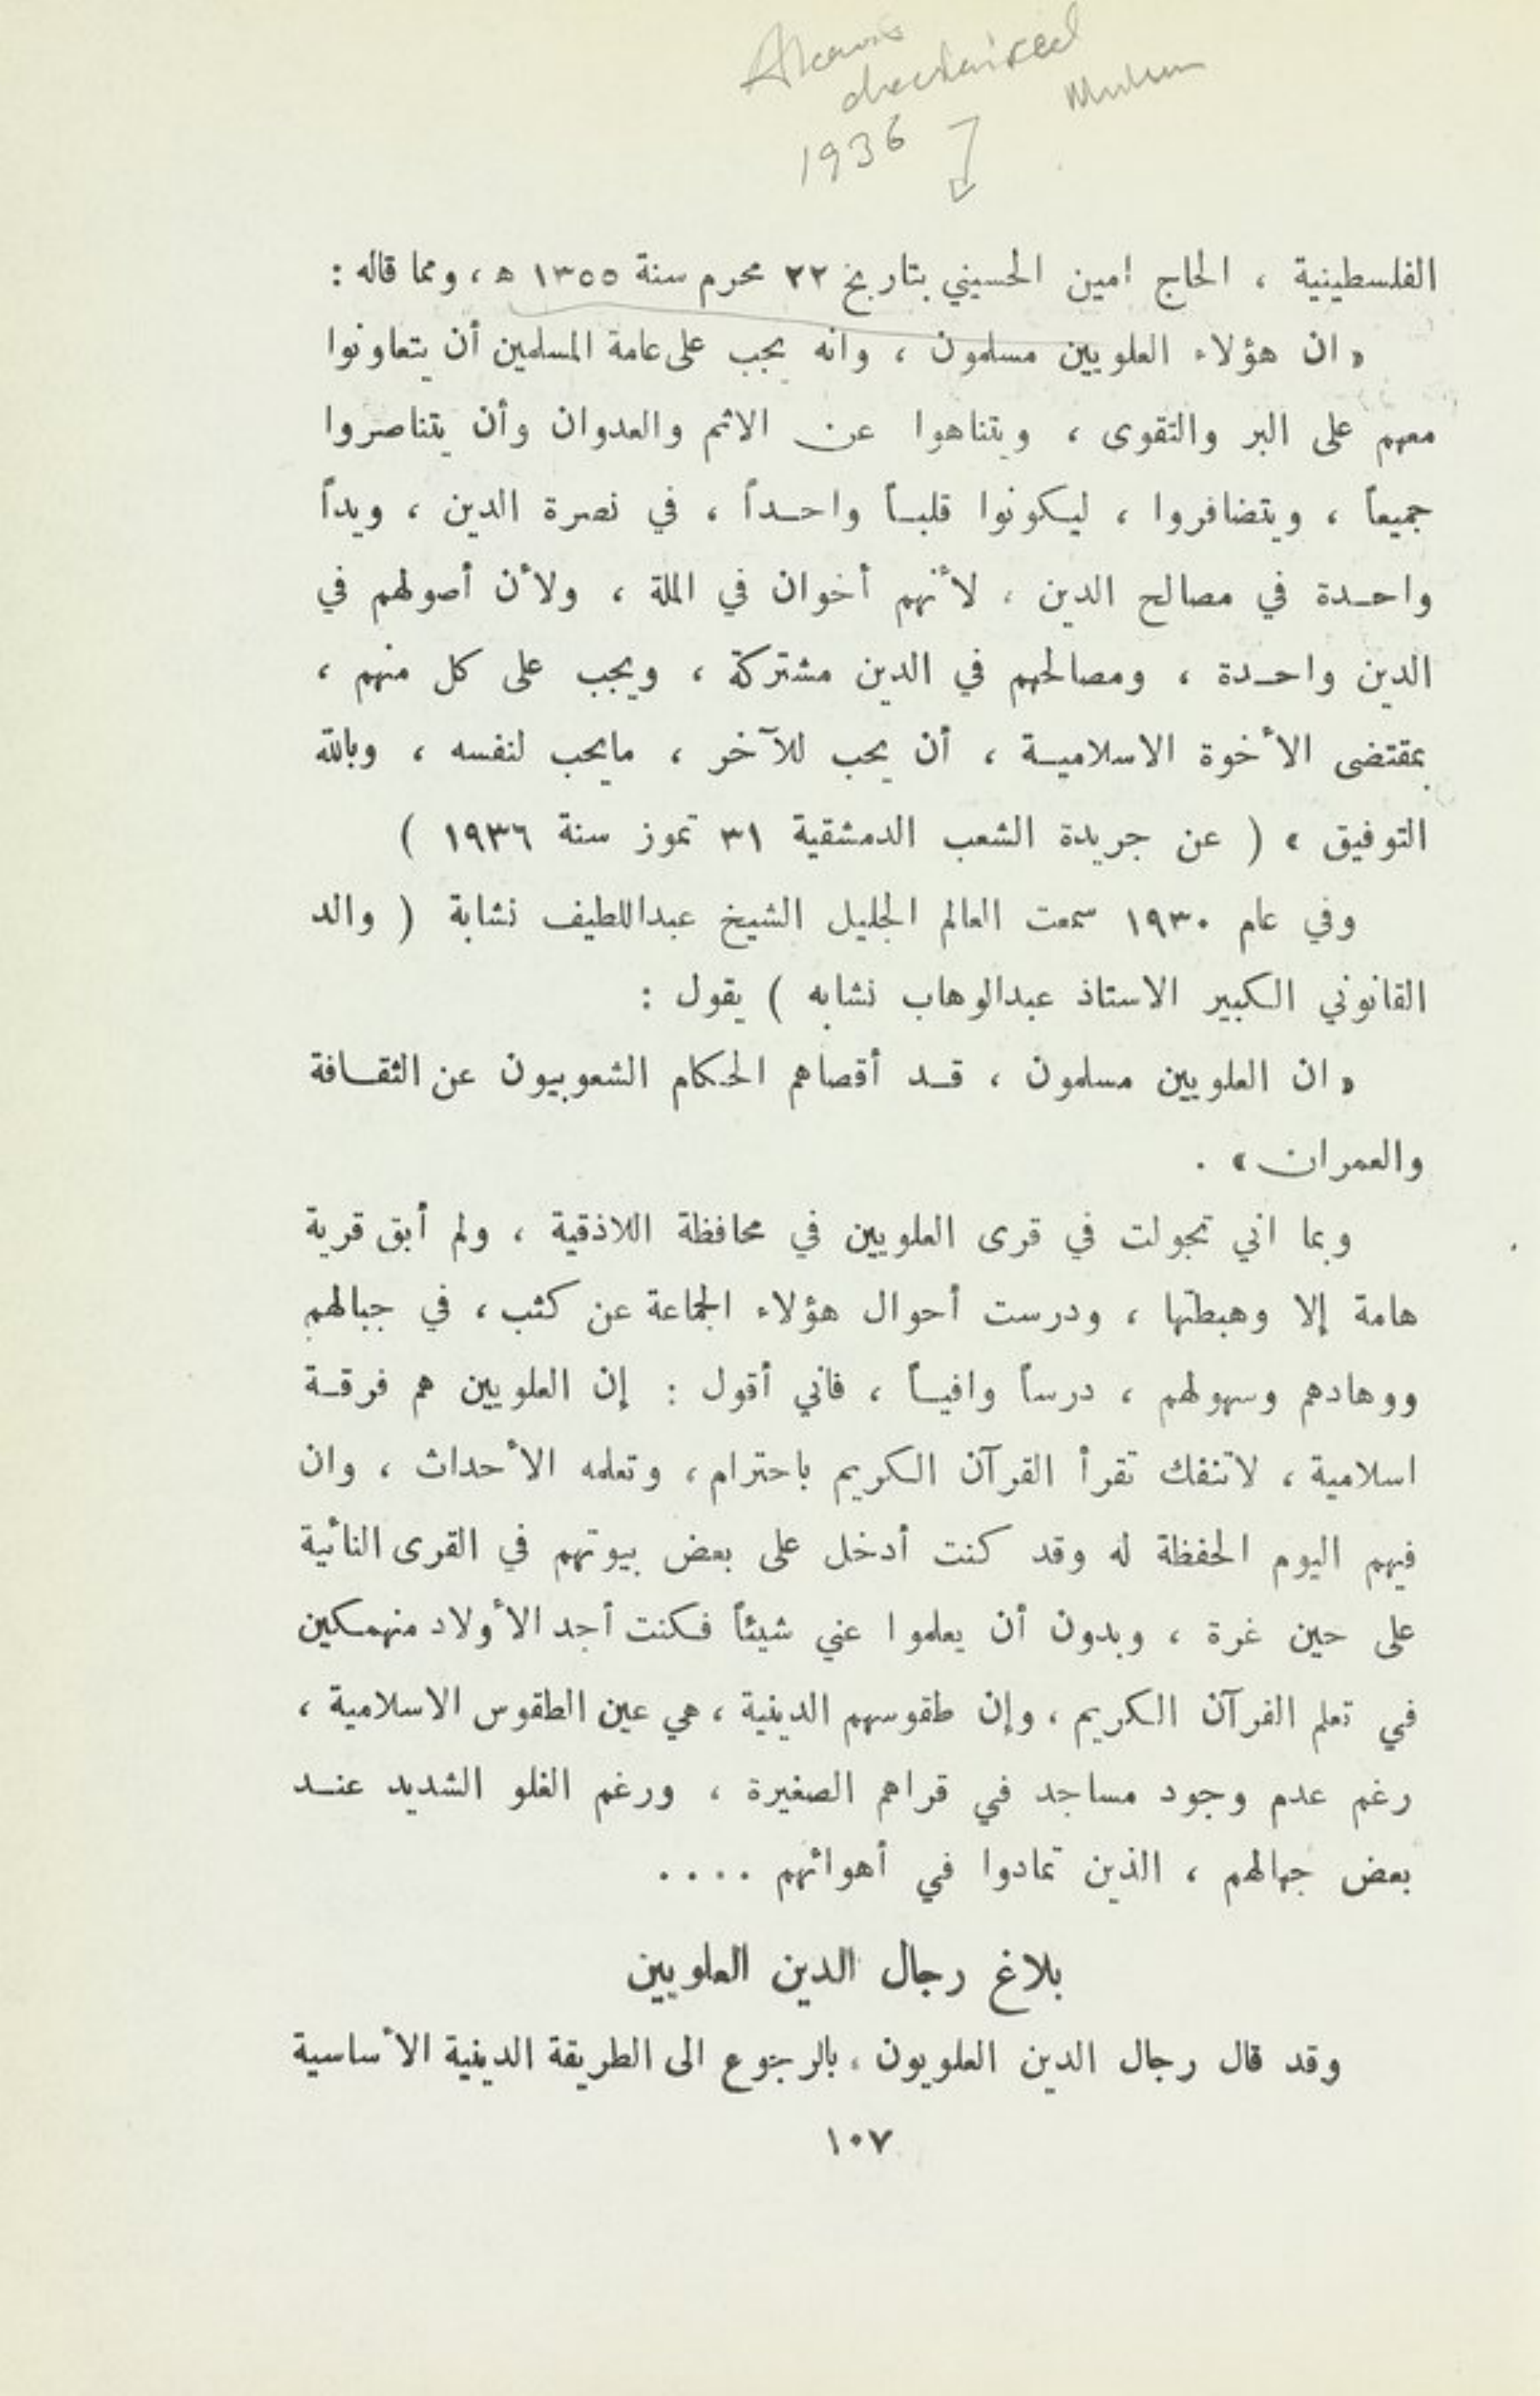 1936
الفلسطينية ، الحاج امين الحسيني بتاريخ ٢٢ محرم سنة ١٣٥٥ ه ، ومما قاله :
« ان هؤلاء العلويين مسلمون ، وانه يجب على عامة المسلمين أن يتعاونوا
معهم على البر والتقوى ، ويتناهوا عن الاثم والعدوان وأن يتناصروا
جميعاً ، ويتضافروا ، ليكونوا قلباً واحداً ، في نصرة الدين ، ويداً
واحدة في مصالح الدين ، لأنهم أخوان في الملة ، ولأن أصولهم في
الدين واحدة ، ومصالحهم في الدين مشتركة ، ويجب على كل منهم ،
بمقتضى الأخوة الاسلامية ، أن يحب للآخر ، مايحب لنفسه ، وبالله
التوفيق » ( عن جريدة الشعب الدمشقية ٣١ تموز سنة ١٩٣٦ )
وفي عام ١٩٣٠ سمعت العالم الجليل الشيخ عبداللطيف نشابة ( والد
القانوني الكبير الاستاذ عبدالوهاب نشابه ) يقول :
« ان العلويين مسلمون ، قد أقصاهم الحكام الشعوبيون عن الثقافة
والعمران » .
وبما اني تجولت في قرى العلويين في محافظة اللاذقية ، ولم أبق قرية
هامة إلا وهبطتها ، ودرست أحوال هؤلاء الجماعة عن كثب ، في جبالهم
ووهادهم وسهولهم ، درساً وافياً ، فاني أقول : إن العلويين هم فرقة
اسلامية ، لاتنفك تقرأ القرآن الكريم باحترام ، وتعلمه الأحداث ، وان
فيهم اليوم الحفظة له وقد كنت أدخل على بعض بيوتهم في القرى النائية
على حين غرة ، وبدون أن يعلموا عني شيئاً فكنت أجد الأولاد منهمكين
في تعلم القرآن الكريم ، وإن طقوسهم الدينية ، هي عين الطقوس الاسلامية ،
رغم عدم وجود مساجد في قراهم الصغيرة ، ورغم الغلو الشديد عند
بعض جهالهم ، الذين تمادوا في أهوائهم ....
بلاغ رجال الدين العلويين
وقد قال رجال الدين العلويون ، بالرجوع الى الطريقة الدينية الأساسية
١٠٧